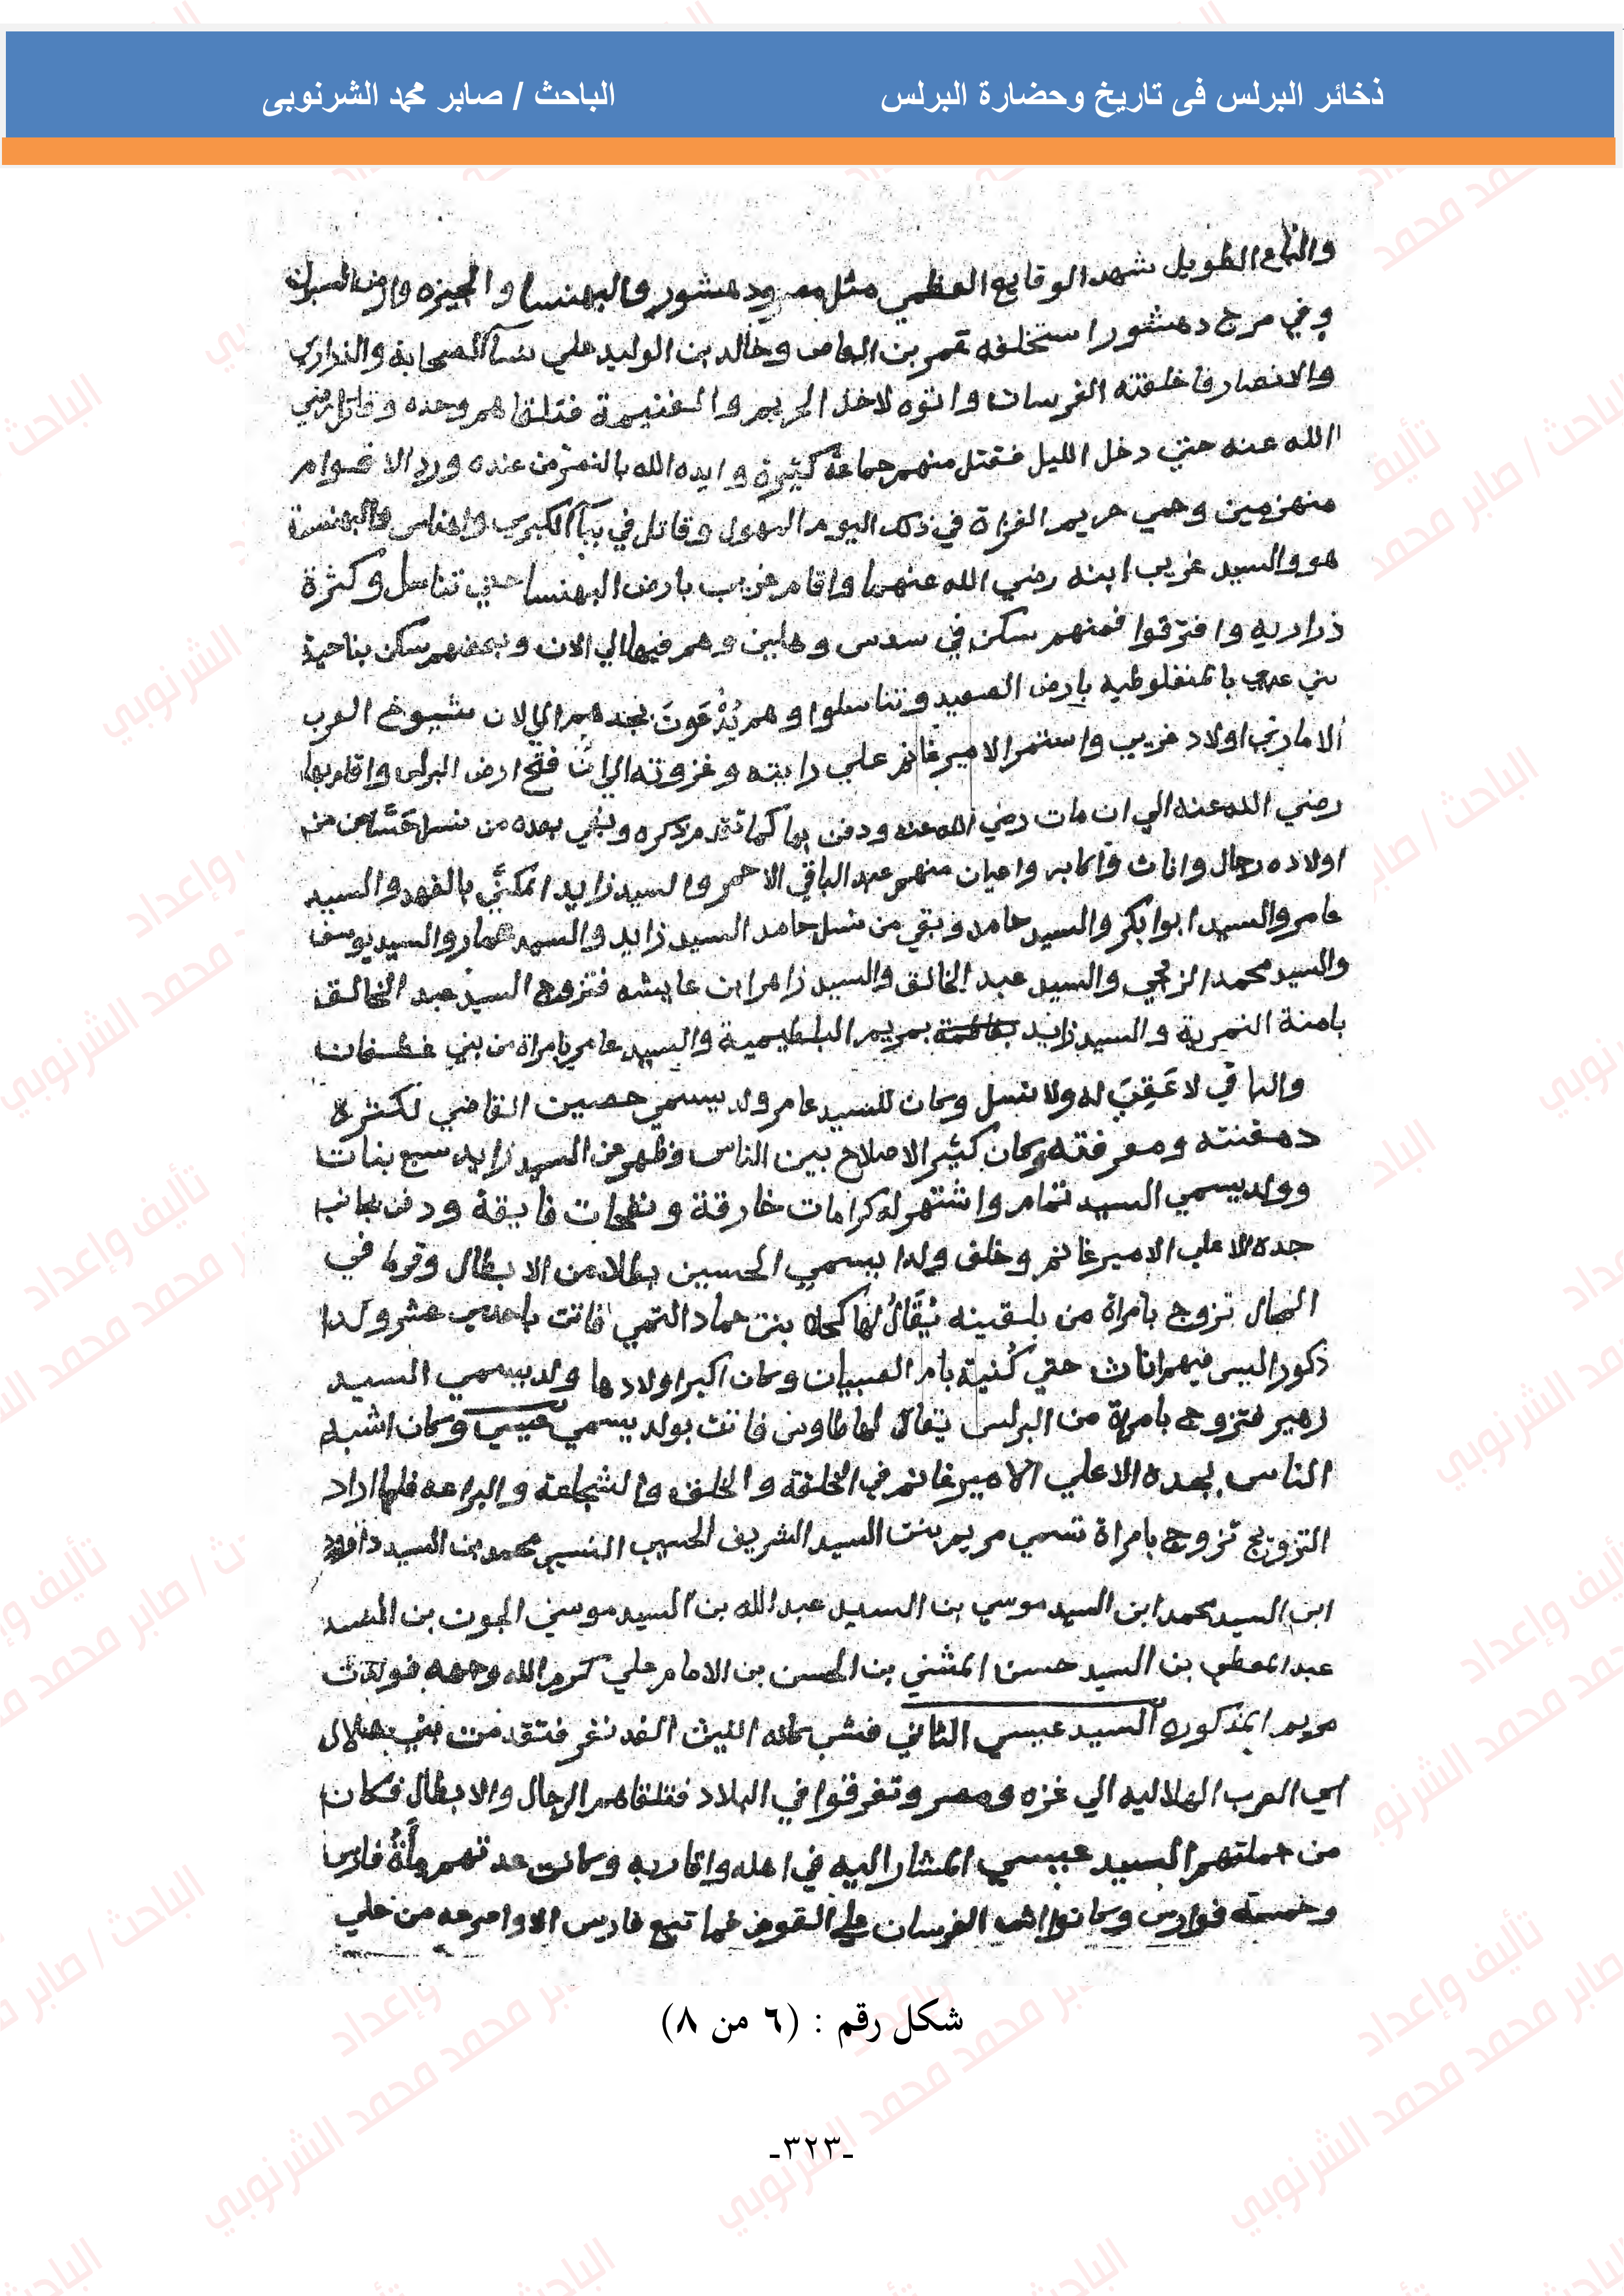 ذخائر البرلس فى تاريخ وحضارة البرلس
الباحث / صابر محمد الشرنوبى
والباع الطويل شهد الوقايع العظمي مثل مصر ودهشور والبهنسا والجيزه وارض البرلس
وفي مرج دهشور استخلفه عمر بن العاص وخالد بن الوليد علي نسآ الصحابة والذراري
والانصار فاخلفته الفرسان واتوه لاخذ الحريم والغنيمة فتلقاهم وحده وقاتل رضي
الله عنه حتي دخل الليل فقتل منهم جماعة كثيرة وايده الله بالنصر من عنده ورد الاقوام
منهزمين وحمي حريم الغزاة في ذلك اليوم المهول وقاتل في ببآ الكبري واهناس والبهنسة
هو والسيد غريب ابنه رضي الله عنهما واقام غريب بارض البهنسا حتي تناسل وكثرة
ذراريه وافترقوا فمنهم سكن في سدس وهابين وهم فيها الي الان وبعضهم سكن بناحية
بني عدي بالمنفلوطيه بارض الصعيد وتناسلوا وهم يُدْعَونَ بجدهم الي الان شيوخ العرب
الامارتي اولاد غريب واستمر الامير غانم علي رايته وغزوته الي انَّ فتح ارض البرلس واقام بها
رضي الله عنه الي ان مات رضي الله عنه ودفن بها كما تقدم ذكره وبقي بعده من نسل من
اولاده رجال واناث واكابر واعيان منهم عبد الباقي الاحمر والسيد زايد المكنَّي بالفهد والسيد
عامر والسيد ابوا بكر والسيد حامد وبقي من نسل حامد السيد زايد والسيد همام والسيد يوسف
والسيد محمد الزمحي والسيد عبد الخالق والسيد زاهر ابن عايشه فتزوج السيد عبد الخالق
بامنة النمرية والسيد زايد بفاطمة بمريم البلطيمية والسيد عامر بامراة من بني غطفان
والباقي لا عَقِبَ له ولا نسل وكان للسيد عامر ولد يسمي حصين القاضي لكثرة
ومعرفته وكان كثير الاصلاح بين الناس وظهر من السيد زايد سبع بنات
وولد يسمي السيد تمام واشتهر له كرامات خارقة ونفحات فايقة ودفن بجانب
جده الاعلي الامير غانم وخلف ولدا يسمي الحسين بطلا من الابطال وقرما في
المجال تزوج بامراة من بلقينه يُقَالُ لها كحلا بنت حماد التمي فاتت باحدي عشر ولدا
ذكور اليس فيهم اناث حتي كُنية بام الصبيان وكان اكبر اولادها ولد يسمي السيد
زهير فتزوج بامراة من البرلس يقال لها طاوس فاتت بولد يسمي عيسي وكان اشبه
الناس بجده الاعلي الامير غانم في الخلقة والخلق والشجاعة والبراعه فلما اراد
التزويج تزوج بامراة تسمي مريم بنت السيد الشريف الحسيب النسيب محمد بن السيد داوود
ابن السيد محمد ابن السيد موسي بن السيد عبد الله بن السيد موسي الجون بن السيد
عبد المعطي بن السيد حسن المثني بن الحسن بن الامام علي كرم الله وجهه فولدت
مريم المذكوره السيد عيسي الثاني فشب كانه الليث الغدنفر فتقدمت بني هلال
اي العرب الهلاليه الي غزه ومصر وتفرقوا في البلاد فتلقاهم الرجال والابطال فكان
من جملتهم السيد عيسي المشار اليه في اهله واقاربه وكانت عدتهم مأةُ فارس
وخمسة فوارس وكانوا اشد الفرسان علي القوم فما تبع فارس الا وامرعه من علي
شكل رقم : (٦ من ٨)
-٣٢٣-